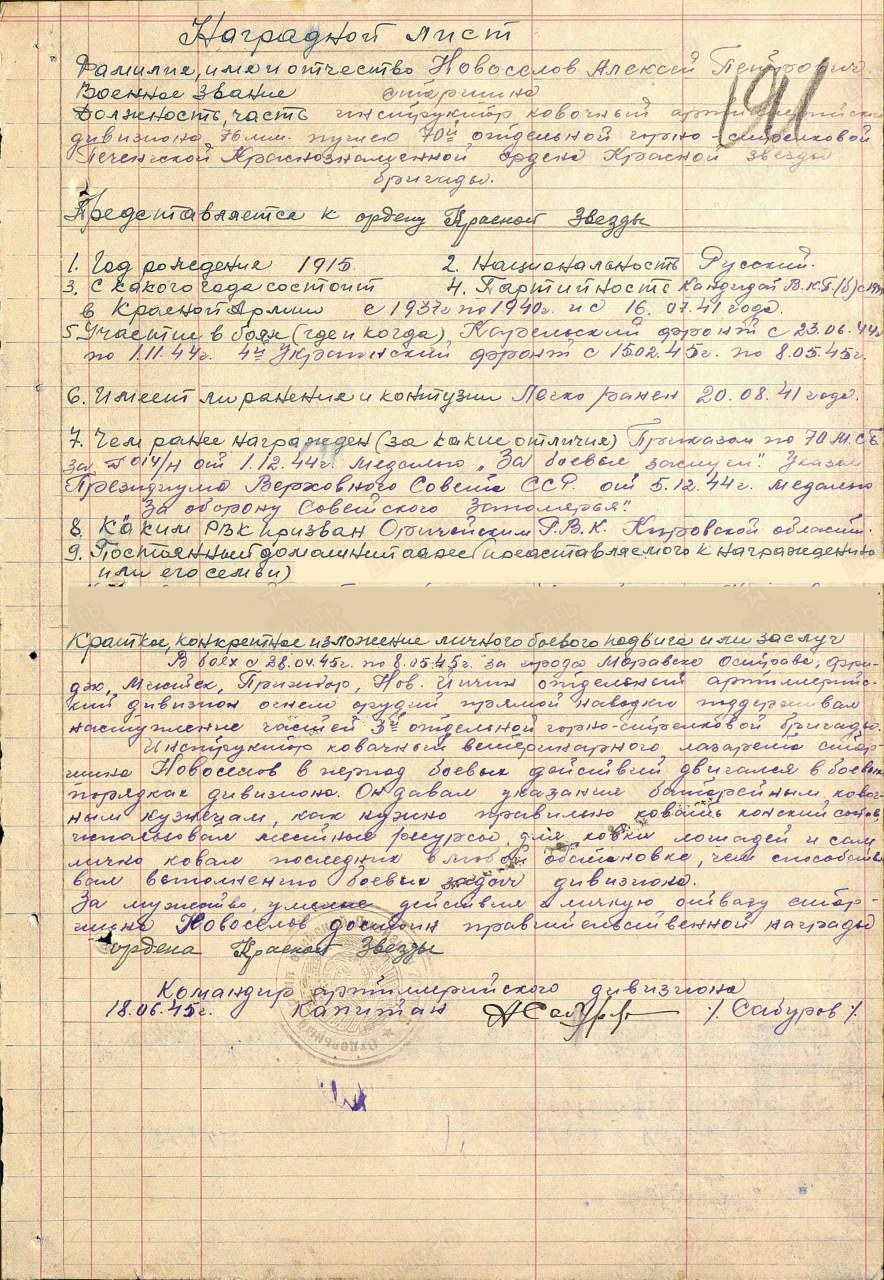 Наградной лист
Фамилия, имя и отчество Новоселов Алексей Петрович
191
Военное звание старшина
Должность, часть инструктор ковочный артиллерийско
дивизиона 76 мм. пушек 70й отдельной горно-стрелковой
Печенгской Краснознаменной ордена Красной Звезды
бригады.
Представляется к ордену Красной Звезды
1. Год рождения 1915 2. Национальность Русский.
3. С какого года состоит 4. Партийность Кандидат В.К.П.(б) с 1944
в Красной Армии с 1937г по 1940г. и с 16.07.41 года.
5. Участие в боях (где и когда) Карельский фронт с 23.06.44г
по 1.11.44г. 4й Украинский фронт с 15.02.45г. по 8.05.45г.
6. Имеет ли ранения и контузии Легко ранен 20.08.41 года.
7. Чем ранее награжден (за какие отличия) Приказом по 70 М.С.Б.
за № 014/н от 1.12.44г. медалью „За боевые заслуги". Указом
Президиума Верховного Совета ССР от 5.12.44г. медалью
"За оборону Советского Заполярья".
8. Каким РВК призван Оричейским Р.В.К. Кировской области.
9. Постоянный домашний адрес (представляемого к награждению
или его семьи)
Краткое, конкретное изложение личного боевого подвига или заслуг
В боях с 28.04.45г. по 8.05.45г. за города Моравска Острава, Фри-
дэк, Мистек, Прижбор, Нов. Ичин отдельный артиллерийс-
кий дивизион огнем орудий прямой наводки поддерживал
наступление частей 3й отдельной горно-стрелковой бригады.
Инструктор ковочный ветеринарного лазарета стар-
шина Новоселов в период боевых действий двигался в боевых
порядках дивизиона. Он давал указания батарейным ковоч-
ным кузнецам, как нужно правильно ковать конский состав,
использовал местные ресурсы для ковки лошадей и сам
лично ковал последних в любой обстановке, чем способство-
вал выполнению боевых задач дивизиона.
За мужество, умелые действия и личную отвагу стар-
шина Новоселов достоин правительственной награды
ордена Красной Звезды
Командир артиллерийского дивизиона
18.06.45г. Капитан /. Сабуров /.